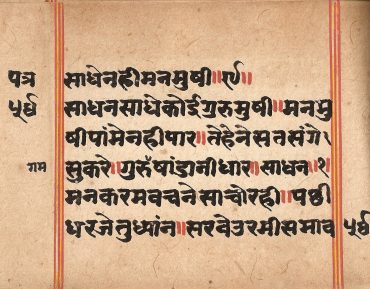 पत्र साधेनहीमनमुषी॥र्थ॥
पूर्घ साधनसाधेकोईगुरुमुषी॥मनमु
षीपांमेनहीपार॥तेहेनेसतसंगे
गम सुकरे॥गुरुषांडानीधार॥साधन॥१
मनकरमवचनेसाचोरही॥पछी
धरजेतुध्यांन॥सरवेउरमीसमाव पूर्घ